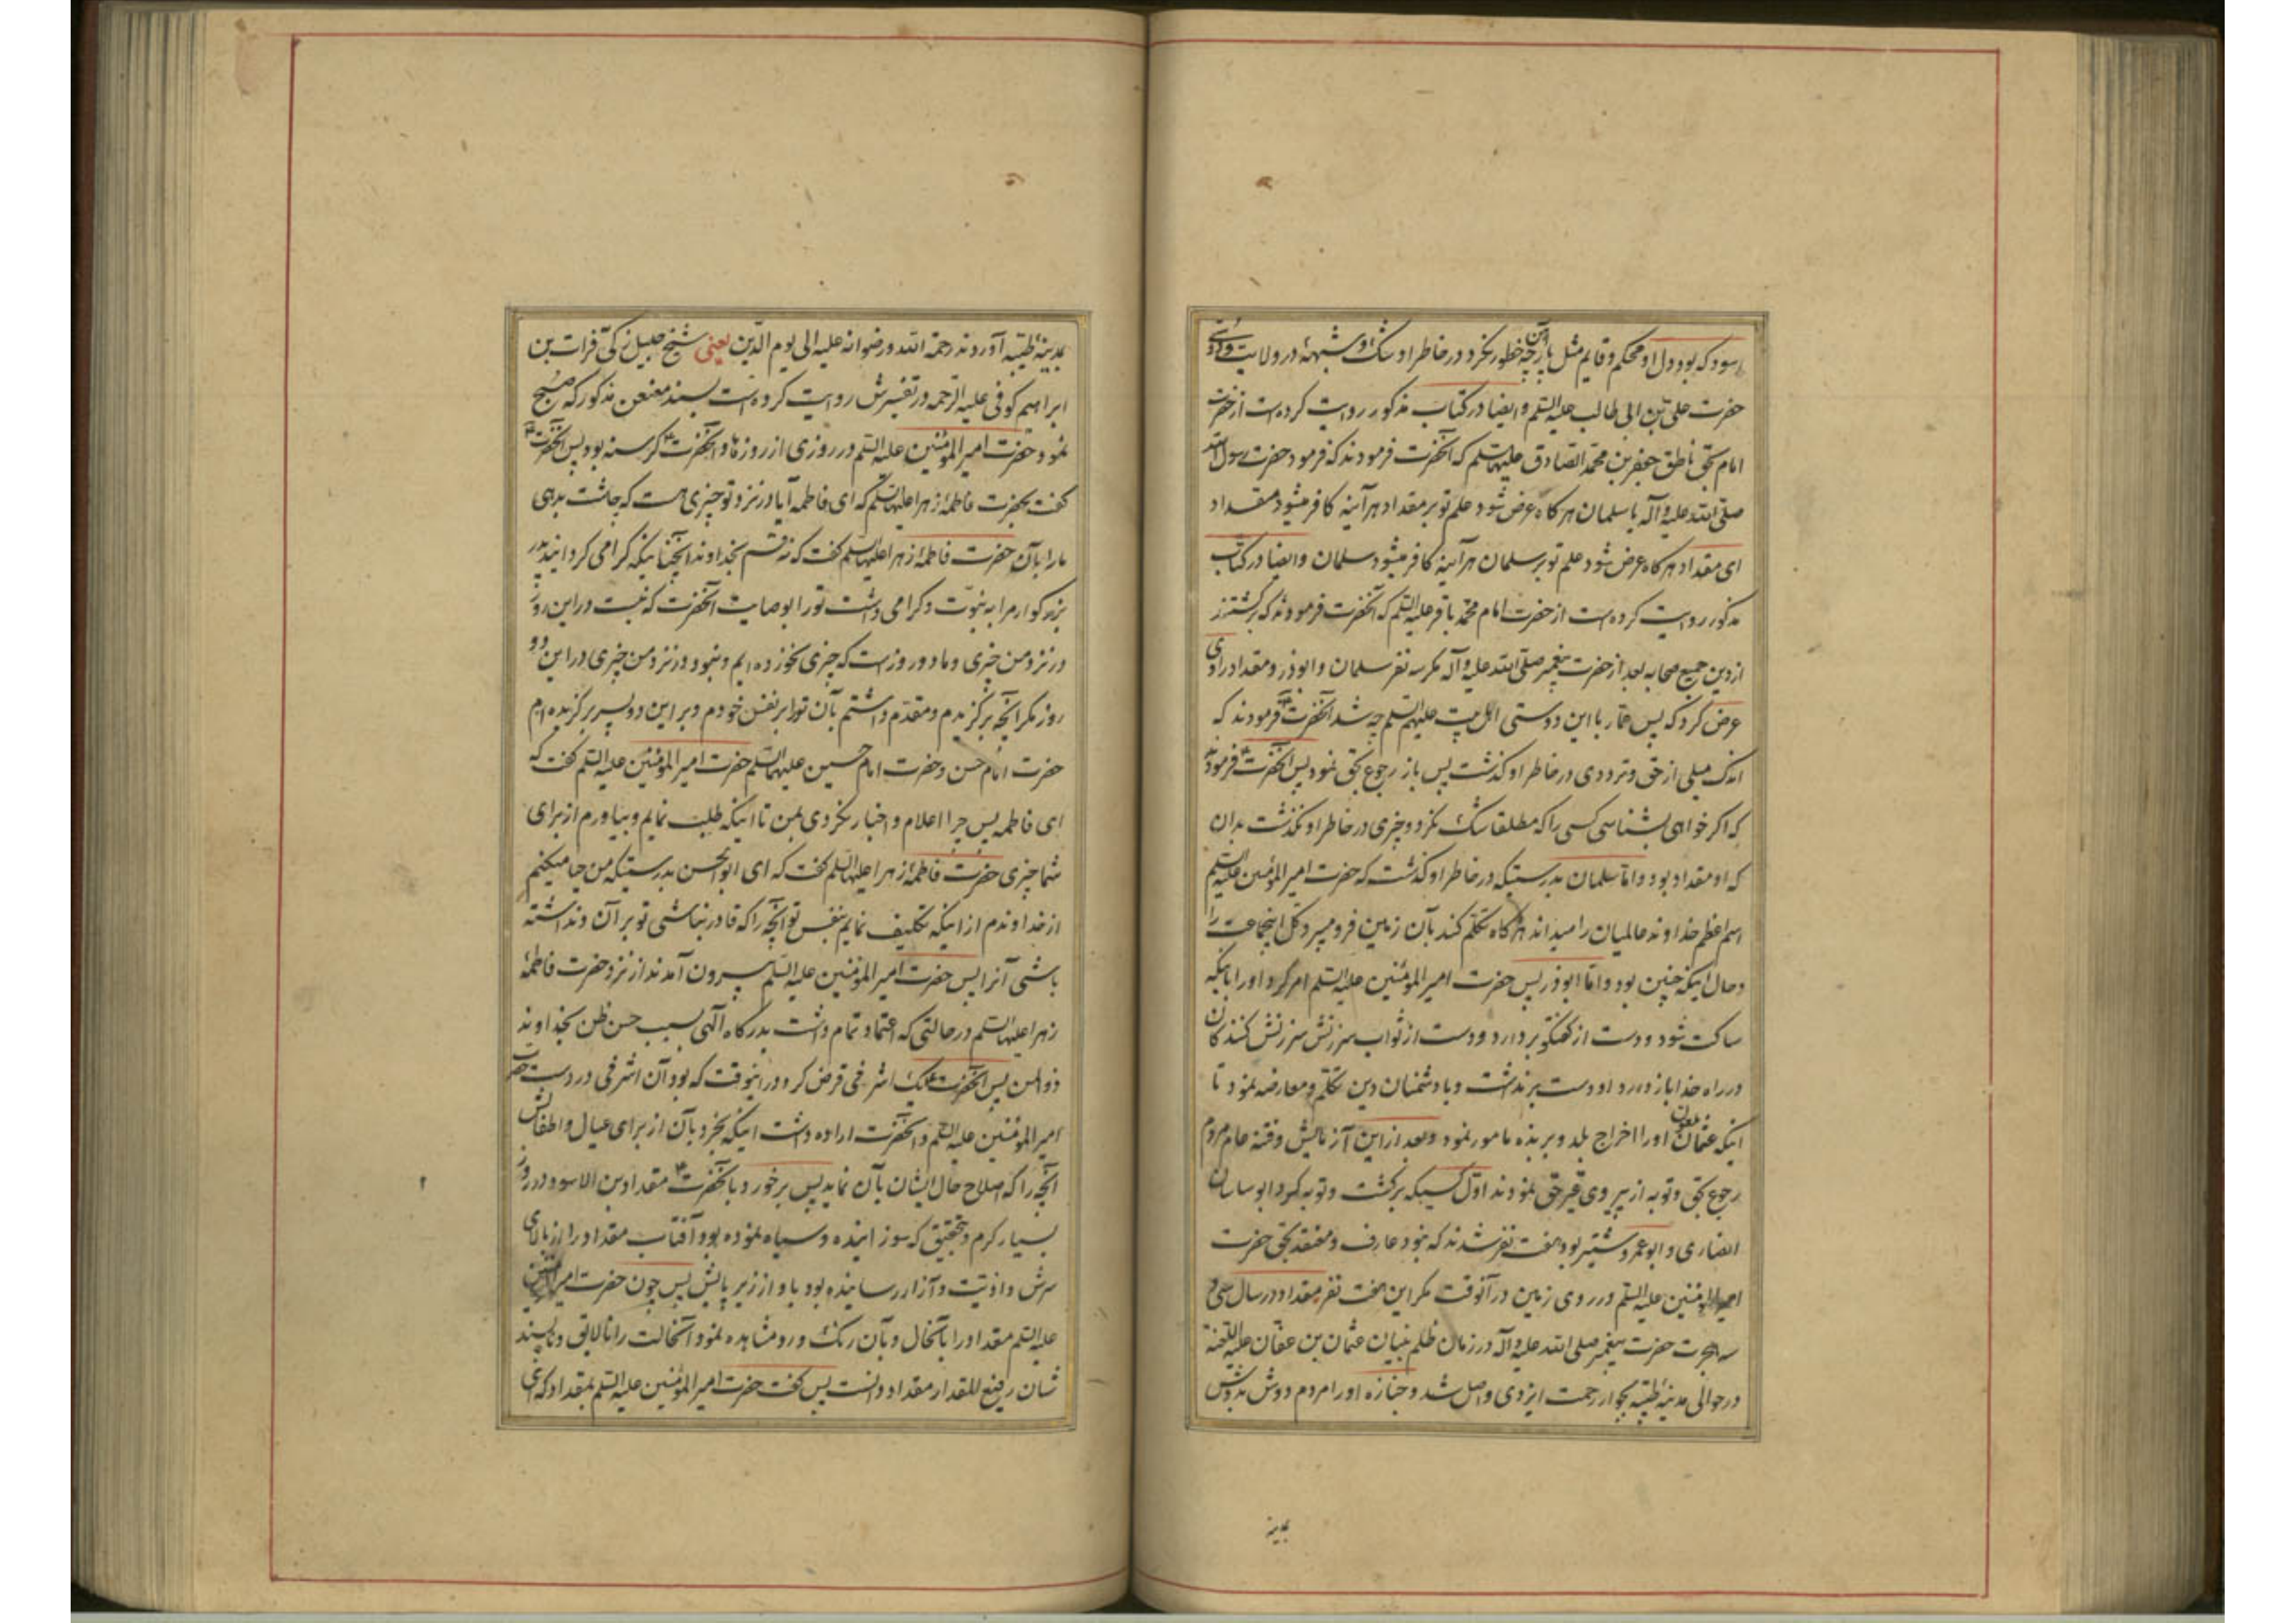 اسود که بود دل او محکم و قایم مثل پارچه آهن خطور نکرد در خاطر او شک و شبهه در ولایت و دوستی
حضرت علی بن ابی طالب علیه السلم و ایضا در کتاب مذکور روایت کرده است از حضرت
امام بحق ناطق جعفر بن محمد الصادق علیهما السلم که آنحضرت فرمودند که فرمود حضرت رسول الله
صلی الله علیه و آله با سلمان هر کاه عرض شود علم تو بر مقداد هر آینه کافر میشود مقداد
ای مقداد هر کاه عرض شود علم تو بر سلمان هر آینه کافر میشود سلمان و ایضا در کتاب
مذکور روایت کرده است از حضرت امام محمد باقر علیه السلم که آنحضرت فرمودند که برکشتند
از دین جمیع صحابه بعد از حضرت پیغمبر صلی الله علیه و آله مکر سه نفر سلمان و ابوذر و مقداد راوی
عرض کرد که پس عمار با این دوستی اهل بیت علیهم السلم چه شد آنحضرت فرمودند که
اندک میلی از حق و ترددی در خاطر او کذشت پس باز رجوع بحق نمود پس آنحضرت فرمود
که اکر خواهی بشناسی کسی را که مطلقا شک نکرد و چیزی در خاطر او نکذشت بدان
که او مقداد بود و اما سلمان بدرستیکه در خاطر او کذشت که حضرت امیر المؤمنین علیه السلم
اسم اعظم خداوند عالمیان را میداند هر کاه تکلم کند بآن زمین فرو میبرد کل اینجماعت را
و حال اینکه چنین بود و اما ابوذر پس حضرت امیر المؤمنین علیه السلم امر کرد او را باینکه
ساکت شود و دست از کفتکو بردارد و دست از ثواب سرزنش سرزنش کنندکان
در راه خدا باز دارد او دست برنداشت و با دشمنان دین تکلم و معارضه نمود تا
اینکه عثمان ملعون او را اخراج بلد و بربذه مامور نمود و بعد از این آزمایش و فتنه عام مردم
رجوع بحق و توبه از پیروی غیر حق نمودند اول کسیکه برکشت و توبه کرد ابو ساسان
انصاری و ابو عمرو و شتیر بود هفت نفر شدند که نبود عارف و معتقد بحق حضرت
امیر المؤمنین علیه السلم در روی زمین در آنوقت مکر این هفت نفر مقداد در سال سی و
سه هجرت حضرت پیغمبر صلی الله علیه و آله در زمان ظلم بنیان عثمان بن عفان علیه اللعنة
در حوالی مدینه طیبه بجوار رحمت ایزدی واصل شد و جنازه او را مردم دوش بدوش
بمدینه
بمدینه طیبه آوردند رحمة الله و رضوانه علیه الی یوم الدین یعنی شیخ جلیل زکی فرات بن
ابراهیم کوفی علیه الرحمه در تفسیرش روایت کرده است بسند معنعن مذکور که صبح
نمود حضرت امیر المؤمنین علیه السلم در روزی از روزها و آنحضرت کرسنه بود پس آنحضرت
کفت بحضرت فاطمه زهرا علیها السلم که ای فاطمه آیا در نزد تو چیزی هست که چاشت بدهی
ما را بآن حضرت فاطمه زهرا علیها السلم کفت که نه قسم بخداوند آنچنانیکه کرامی کردانید پدر
بزرکوارم را به نبوت و کرامی داشت تو را بوصایت آنحضرت که نیست در این روز
در نزد من چیزی و ما دو روز است که چیزی نخورده ایم و نبود در نزد من چیزی در این دو
روز مکر آنچه برکزیدم و مقدم داشتم بآن تو را بر نفس خودم و بر این دو پسر برکزیده ام
حضرت امام حسن و حضرت امام حسین علیهما السلم حضرت امیر المؤمنین علیه السلم کفت که
ای فاطمه پس چرا اعلام و اخبار نکردی بمن تا اینکه طلب نمایم و بیاورم از برای
شما چیزی حضرت فاطمه زهرا علیها السلم کفت که ای ابو الحسن بدرستیکه من حیا میکنم
از خداوندم از اینکه تکلیف نمایم بنفس تو آنچه را که قادر نباشی تو بر آن و نداشته
باشی آنرا پس حضرت امیر المؤمنین علیه السلم بیرون آمدند از نزد حضرت فاطمه
زهرا علیها السلم در حالتی که اعتماد تمام داشت بدرکاه الهی بسبب حسن ظن بخداوند
ذوالمن پس آنحضرت یک اشرفی قرض کرد در اینوقت که بود آن اشرفی در دست حضرت
امیر المؤمنین علیه السلم و آنحضرت اراده داشت اینکه بخرد بآن از برای عیال و اطفالش
آنچه را که اصلاح حال ایشان بآن نماید پس برخورد بآنحضرت مقداد بن الاسود در روز
بسیار کرم و بتحقیق که سوزاینده و سیاه نموده بود آفتاب مقداد را از بالای
سرش و اذیت و آزار رسانیده بود باو از زیر پایش پس چون حضرت امیر المؤمنین
علیه السلم مقداد را بآنحال و بآن رنک و رو مشاهده نمود و آنحالت را نالایق و ناپسند
شان رفیع المقدار مقداد دانست پس کفت حضرت امیر المؤمنین علیه السلم بمقداد که ای